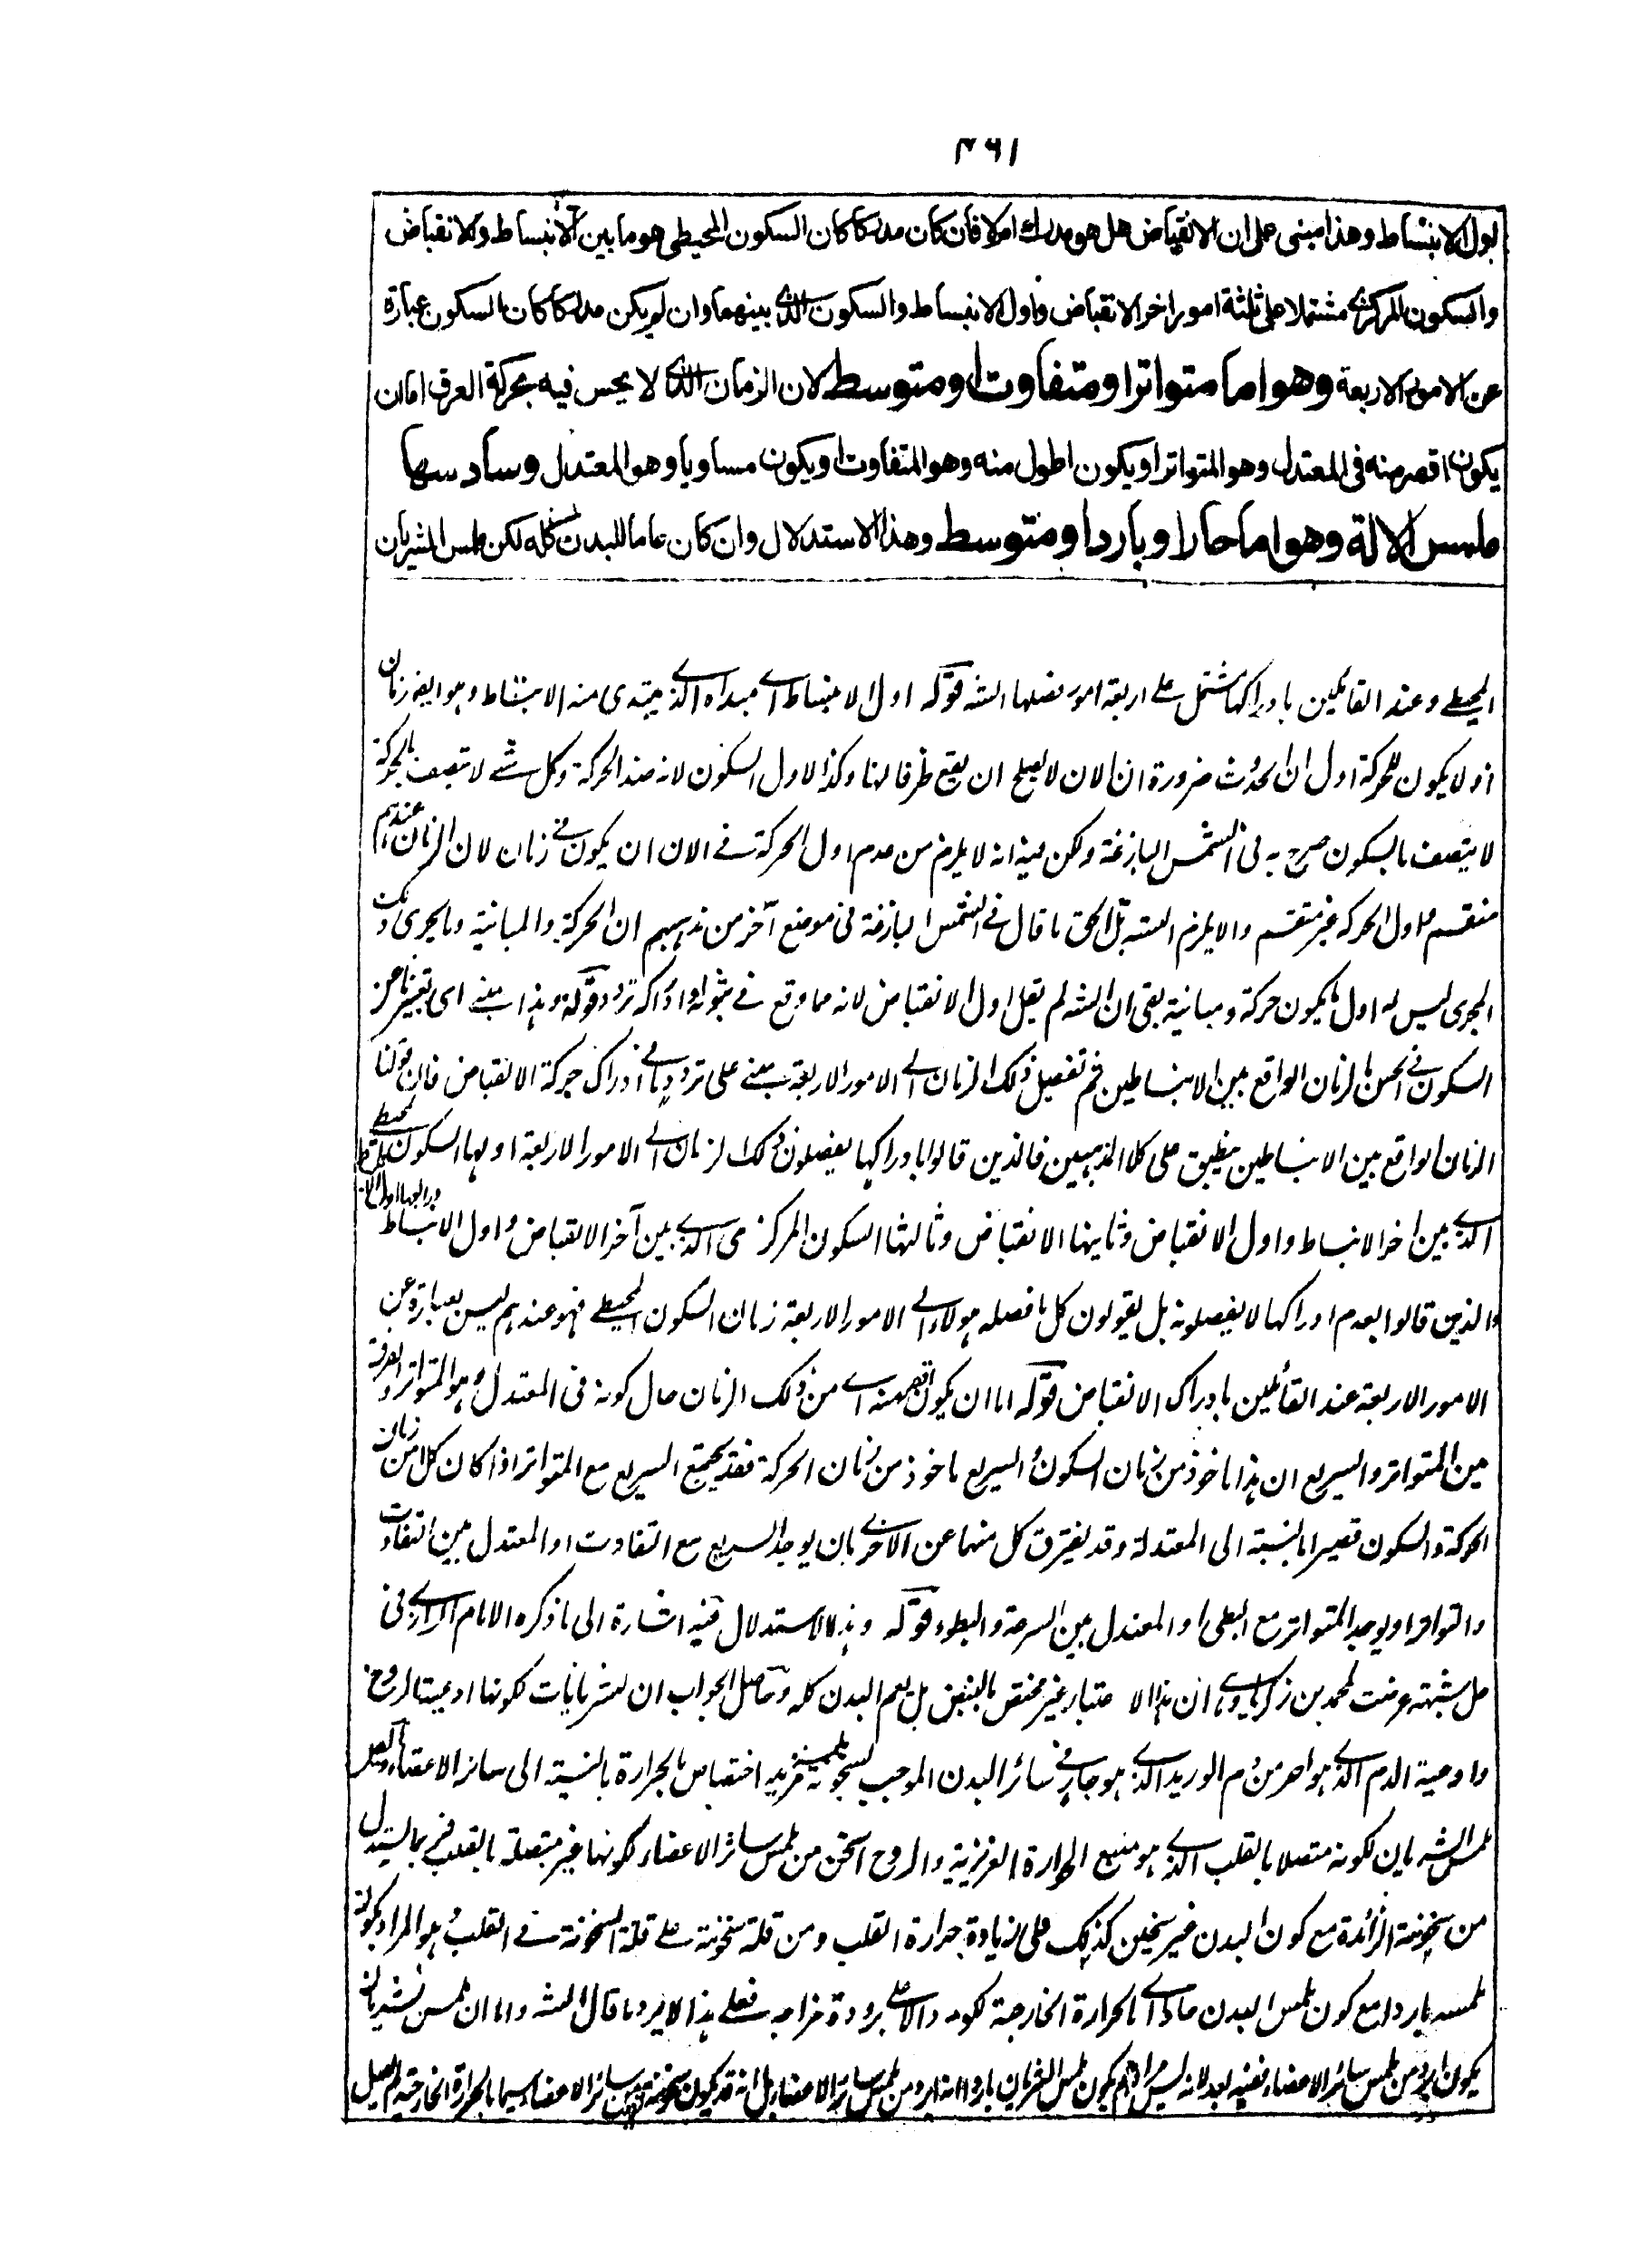 ۴۶۱
اول الانبساط وهذا مبنى على ان الانقباض هل هو مدرك ام لا فان كان مدركا كان السكون المحيطى هو ما بين الانبساط والانقباض
والسكون المركزى مشتملا على ثلثة امور اخر الانقباض واول الانبساط والسكون الذى بينهما وان لم يكن مدركا كان السكون عبارة
عن الامور الاربعة وهو اما متواتر او متفاوت او متوسط لان الزمان الذى لا يحس فيه بحركة العرق اما ان
يكون اقصر منه فى المعتدل وهو المتواتر او يكون اطول منه وهو المتفاوت او يكون مساويا وهو المعتدل وسادسها
ملمس الالة وهو اما حار او بارد او متوسط وهذا الاستدلال وان كان عاما للبدن كله لكن ملمس الشريان
المحيطے وعند القائلين بادراكها مشتمل علے اربعة امور فصلها الشه قوله اول الانبساط اے مبداه الذے يبتدى منه الانبساط وهو ايضا زمان
اذ لا يكون للحركة اول ان الحدوث ضرورة ان الان لا يصلح ان يقع ظرفا لها وكذا لاول السكون لانه ضد الحركة وكل شے لا يتصف بالحركة
لا يتصف بالسكون صرح به فى الشمس البازغة ولكن فيه انه لا يلزم من عدم اول الحركة فے الان ان يكون فے زمان لان الزمان عندهم
منقسم واول الحركة غير منقسم والا يلزم بل الحق ما قال فے الشمس البازغة فى موضع آخر من مذهبهم ان الحركة والمباينة وما يجرى ذلك
المجرى ليس له اول يكون حركة ومباينة بقى ان الشه لم يقل اول الانقباض لانه مما وقع فے ثبوته وادراكه تردد قوله وهذا مبنے اى تعبيرنا عن
السكون فے الحس بالزمان الواقع بين الانبساطين ثم تفصيل ذلك الزمان الے الامور الاربعة مبنے على تردد فے ادراك حركة الانقباض فان قولنا
الزمان الواقع بين الانبساطين ينطبق على كلا المذهبين فالذين قالوا بادراكها يفصلون ذلك الزمان الے الامور الاربعة اولها السكون المحيطے
الذے بين اخر الانبساط واول الانقباض وثانيها الانقباض وثالثها السكون المركزى الذے بين آخر الانقباض واول الانبساط
والذين قالوا بعدم ادراكها لا يفصلونه بل يقولون كل ما فصله هولاء الے الامور الاربعة زمان السكون المحيطے فهو عندهم ليس بعبارة عن
الامور الاربعة عند القائلين بادراك الانقباض قوله اما ان يكون اقصر منه اے من ذلك الزمان حال كونه فى المعتدل وهو المتواتر والفرق
بين المتواتر والسريع ان هذا ماخوذ من زمان السكون والسريع ماخوذ من زمان الحركة فقد يجتمع السريع مع المتواتر اذا كان كل من زمان
الحركة والسكون قصيرا بالنسبة الى المعتدلة وقد يفترق كل منهما عن الاخر بان يوجد السريع مع التفاوت او المعتدل بين التفاوت
والتواتر او يوجد المتواتر مع البطى او المعتدل بين السرعة والبطوء قوله وهذا الاستدلال فيه اشارة الى ما ذكره الامام الرازے فى
حل شبهة عرضت لمحمد بن زكريا وهے ان هذا الاعتبار غير مختص بالنبض بل يعم البدن كله وحاصل الجواب ان للشريانات لكونها اوعية الروح
واوعية الدم الذے هو احر من دم الوريد الذے هو جار فے سائر البدن الموجب لسخونة مزيد اختصاص بالحرارة بالنسبة الى سائر الاعضاء
ملمس الشريان لكونه متصلا بالقلب الذے هو منبع الحرارة الغريزية والروح اسخن من ملمس سائر الاعضاء لكونها غير متصلة بالقلب فربما يستدل
من سخونته الزائدة مع كون البدن غير سخين كذلك على زيادة حرارة القلب ومن قلة سخونته علے قلة السخونة فے القلب وهو المراد بكون
ملمسه باردا مع كون ملمس البدن حارا اے بالحرارة الخارجية لكونه دالا علے برودة مزاجه فعلے هذا لا يرد ما قال الشه واما ان ملمس الشريان
يكون ابرد من ملمس سائر الاعضاء ففيه بعد لانه ليس مرادهم بكون ملمس الشريان باردا انه ابرد من ملمس سائر الاعضاء بل انه قد يكون سائر الاعضاء سيما بالحرارة الخارجية